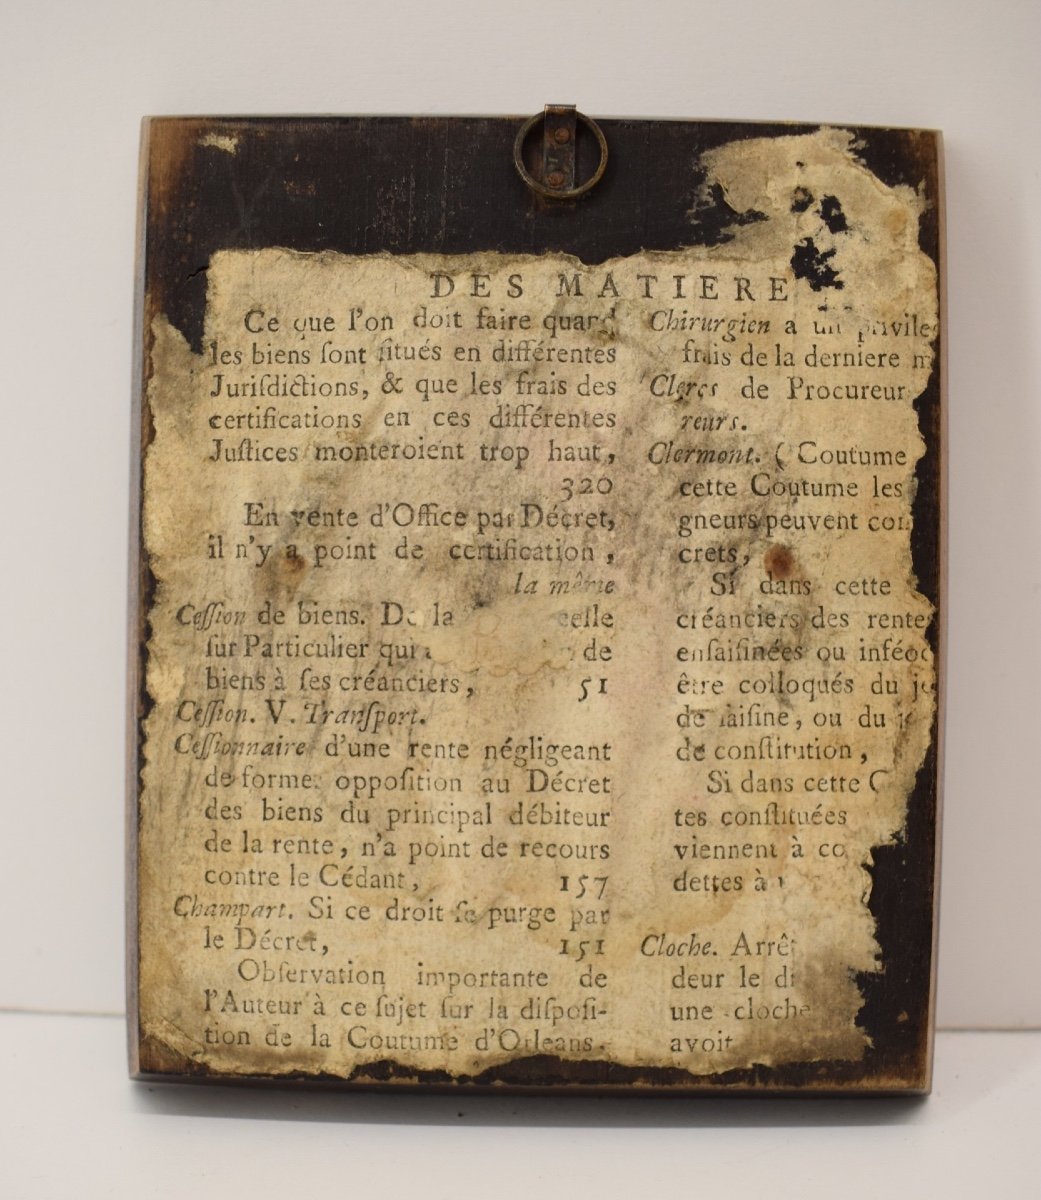 DES MATIERE
Ce que l'on doit faire quand
les biens ſont ſitués en différentes
Juriſdictions, & que les frais des
certifications en ces différentes
Juſtices monteroient trop haut,
320
En vente d'Office par Décret,
il n'y a point de certification,
la même
Ceſſion de biens. De la celle
ſur Particulier qui de
biens à ſes créanciers, 51
Ceſſion. V. Tranſport.
Ceſſionnaire d'une rente négligeant
de former oppoſition au Décret
des biens du principal débiteur
de la rente, n'a point de recours
contre le Cédant, 157
Champart. Si ce droit ſe purge par
le Décret, 151
Obſervation importante de
l'Auteur à ce ſujet ſur la diſpoſi-
tion de la Coutume d'Orleans.
Chirurgien a un privile
frais de la derniere m
Clercs de Procureur
reurs.
Clermont. (Coutume
cette Coutume les
gneurs peuvent con
crets,
Si dans cette
créanciers des rentes
enſaiſinées ou inféod
être colloqués du jo
de ſaiſine, ou du jo
de conſtitution,
Si dans cette C
tes conſtituées
viennent à co
dettes à
Cloche. Arrêt
deur le di
une cloche
avoit